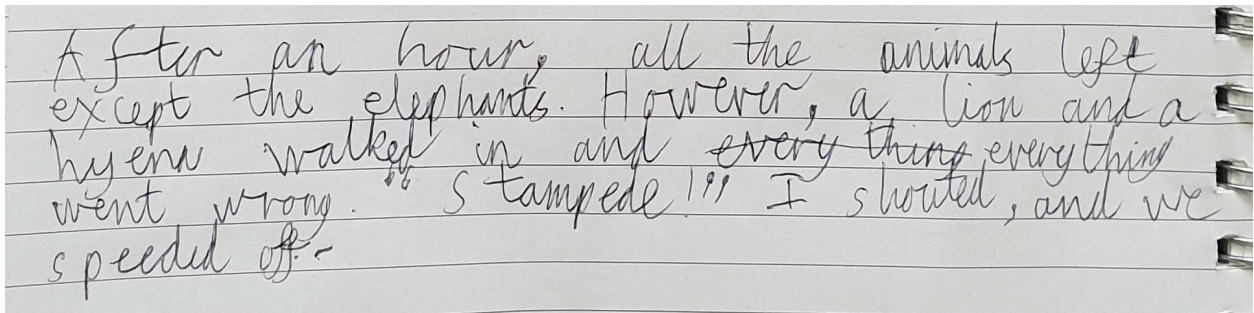 After an hour, all the animals left
except the elephants. However, a lion and a
hyena walked in and ~~every thing~~ everything
went wrong. "Stampede!" I shouted, and we
speeded off.